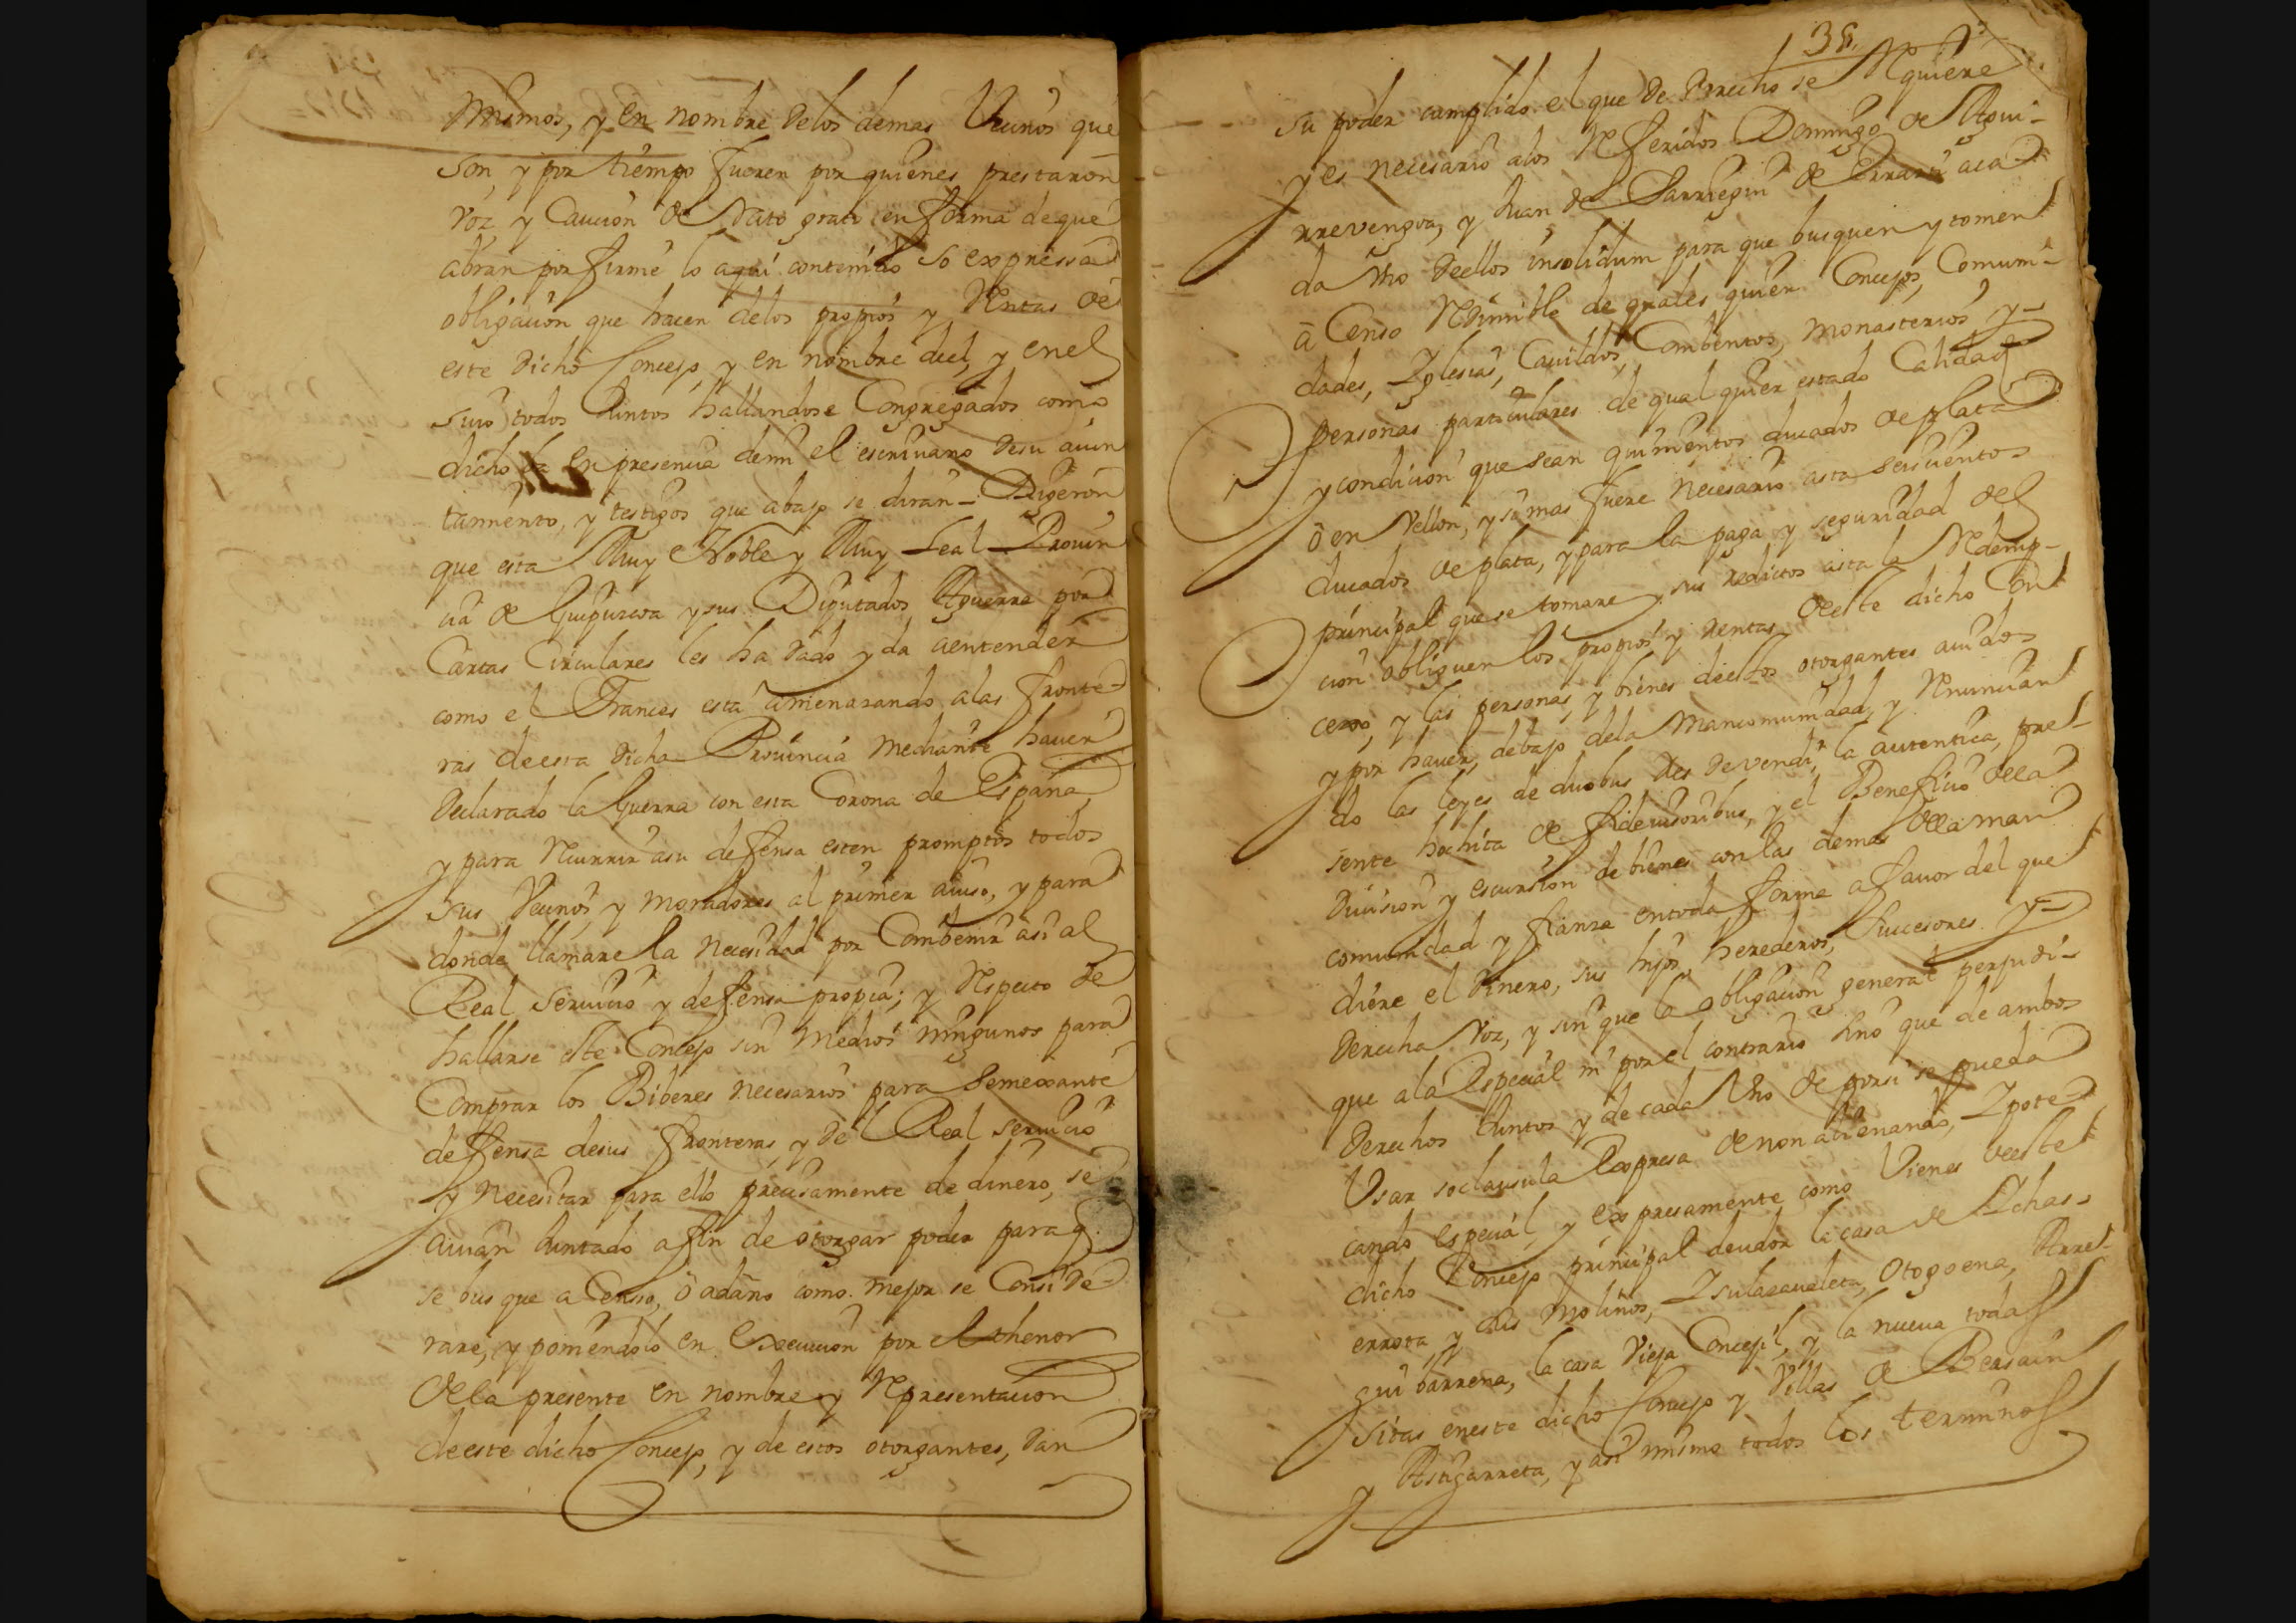 mismos, y en nombre delos demas Vecinos que
son, y por tiempo fueren por quienes prestaron
voz y Caucion de rato grato en forma de que
abran por firme lo aqui contenido so expressa
obligacion que hacen delos propios y Rentas de
este dicho Concejo, y en nombre del, y en el
suio todos Juntos hallandose Congregados como
dicho es en presencia demi el escrivano desu aiun
tamiento, y testigos que abajo se diran = Digeron
que esta Muy Noble y Muy Leal Provin
cia de Guipuzcoa y sus Diputados Aguerra por
Cartas Circulares les ha dado y da aentender
como el Frances está amenazando alas fronte-
ras deesta dicha Provincia mediante haver
declarado la Guerra con esta Corona de España,
y para Recurrir asu defensa esten promptos todos
sus Vecinos, y moradores al primer auiso, y para
donde llamare la necesidad por Combenir asi al
Real servicio y defensa propia; y Respecto de
hallarse este Concejo sin medios ningunos para
Comprar los Biberes necesarios para Semexante
defensa desus fronteras, y del Real servicio
y Necesitar para ello precisamente de dinero, se
auian Juntado afin de otorgar poder para q.
se busque a Censo, ó adaño como mejor se Conside-
rare, y poniendolo en Execucion por el thenor
dela presente en nombre y Representacion
deeste dicho Concejo, y de estos otorgantes, dan
38.
su poder cumplido el que de Derecho se Requiere
y es necesario alos Referidos Domingo de Agui-
rrevengoa, y Juan de Sarriegui de Errarz aca
da Vno deellos insolidum para que busquen y tomen
á Censo Redimible de quales quier Concejos, Comuni-
dades, Iglesias, Cauildos, Combentos, monasterios y
personas particulares de qual quier estado Calidad
y condicion que sean quinientos ducados de plata
ó en Vellon, y si mas fuere necesario asta seiscientos
ducados de plata, y para la paga y seguridad del
principal que se tomare y sus reditos asta la Redemp-
cion obliguen los propios y Rentas deeste dicho Con
cexo, y las personas, y bienes deellos otorgantes auidos
y por hauer, debajo dela Mancomunidad, y Renuncian
do las leyes de duobus Res devendi, la autentica pre-
sente hochita de fideiusoribus, y el Beneficio dela
Diuision y escursion de bienes con las demas dela man
comunidad y fianza en toda forma a fauor del que
diere el dinero, sus hijos, herederos, Succesores y
derecha Voz, y sin que la obligacion general perjudi-
que ala Especial ni por el contrario sino que de ambos
derechos Juntos y de cada Vno de porsi se pueda
Vsar so clausula Expresa de non alienando, Ipote-
cando especial y expresamente como Vienes deeste
dicho Concejo principal deudor la casa de Echas-
errota y sus molinos, Isulazaueleta, Otogoena, Arre-
gui barrena, la casa Vieja Concejil, y la nueua todas
sitas eneste dicho Concejo y Villas de Beasain
y Astigarreta, y asi mismo todos los terminos